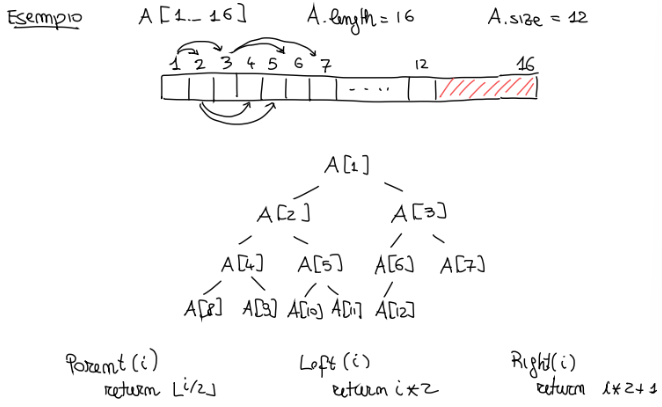 Esempio A[1... 16] A.length = 16 A.size = 12
1 2 3 4 5 6 7 12 16
....
A[1]
A[2] A[3]
A[4] A[5] A[6] A[7]
A[8] A[9] A[10] A[11] A[12]
Parent (i) Left (i) Right(i)
return ⌊i/2⌋ return i*2 return i*2+1